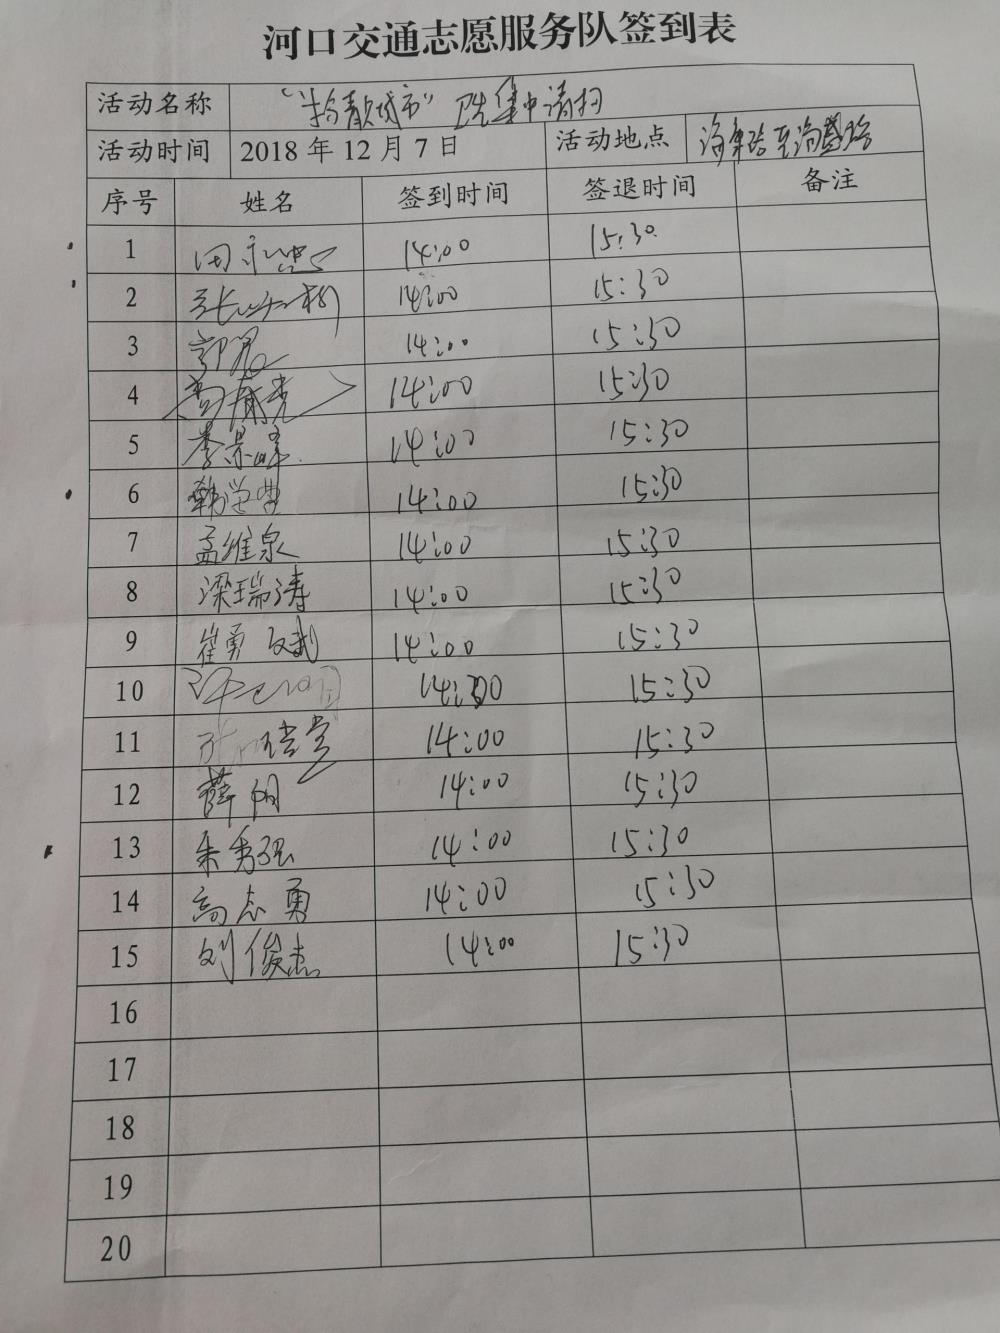 河口交通志愿服务队签到表
活动名称 城市" 集中清扫
活动时间 2018 年 12 月 7 日 活动地点 至
序号 姓名 签到时间 签退时间 备注
1 14:00 15:30
2 14:00 15:30
3 14:00 15:30
4 14:00 15:30
5 李景峰 14:00 15:30
6 韩学 14:00 15:30
7 孟维泉 14:00 15:30
8 梁瑞涛 14:00 15:30
9 崔勇 14:00 15:30
10 15:30
11 14:00 15:30
12 薛明 14:00 15:30
13 朱秀强 14:00 15:30
14 高志勇 14:00 15:30
15 刘俊杰 14:00 15:30
16
17
18
19
20